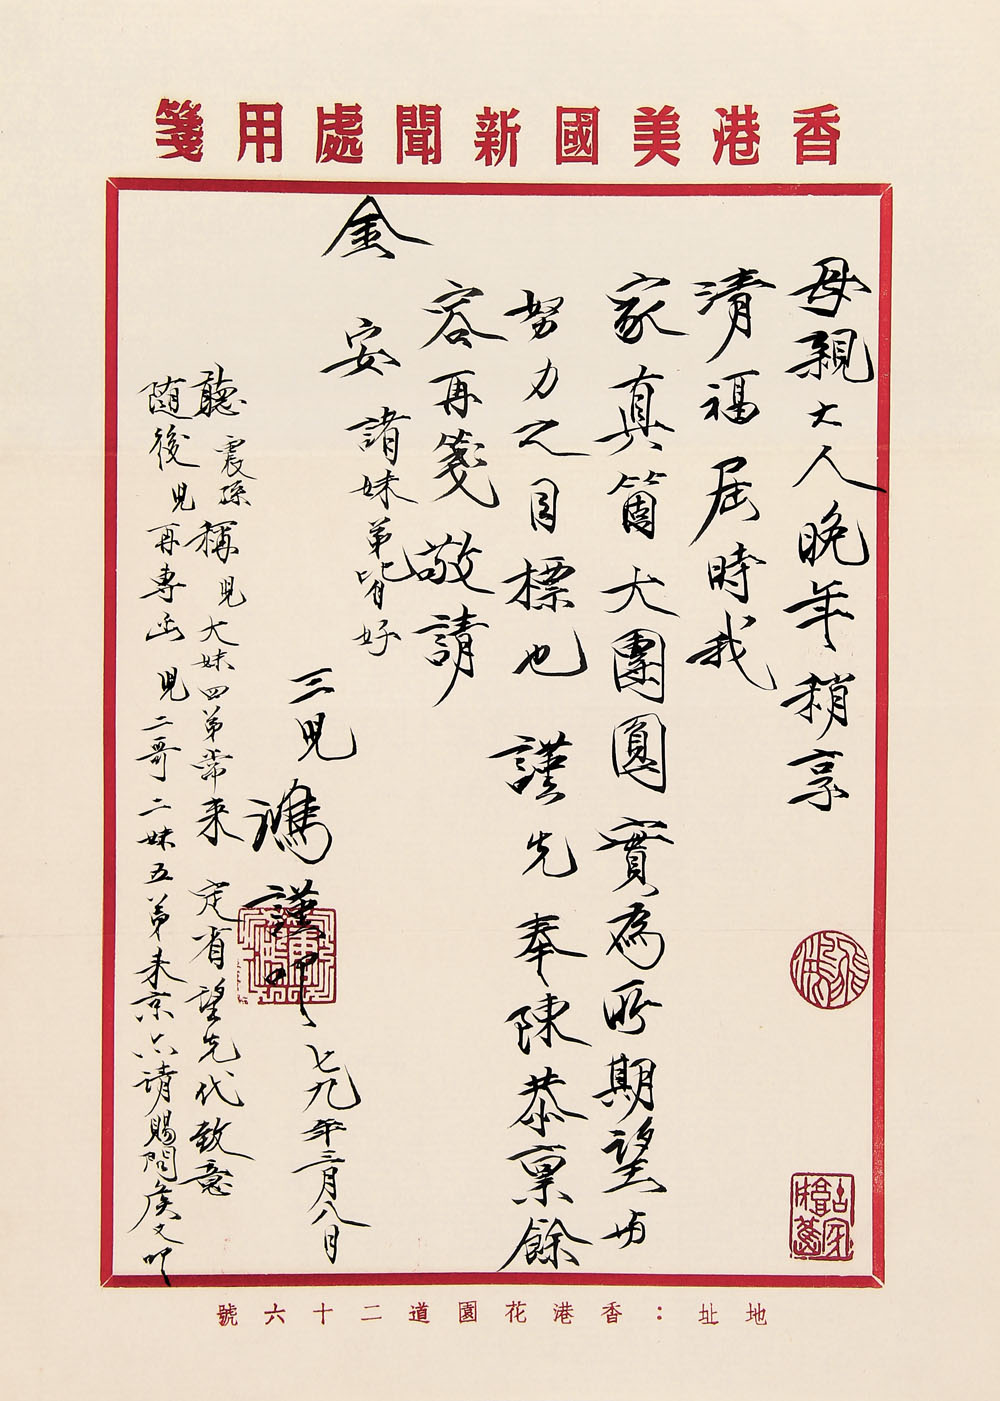 香港美國新聞處用箋
母親大人晚年稍享
清福屆時我
家真箇大團圓實為所期望與
努力之目標也 謹先奉陳恭稟餘
容再箋敬請
金
安 諸妹弟皆好
三兒鴻謹叩 七九年三月八日
聽震孫稱兒大妹四弟常來 定省望先代致意
隨後兒再專函兒二哥二妹五弟來京六請賜問侯又叩
地址：香港花園道二十六號